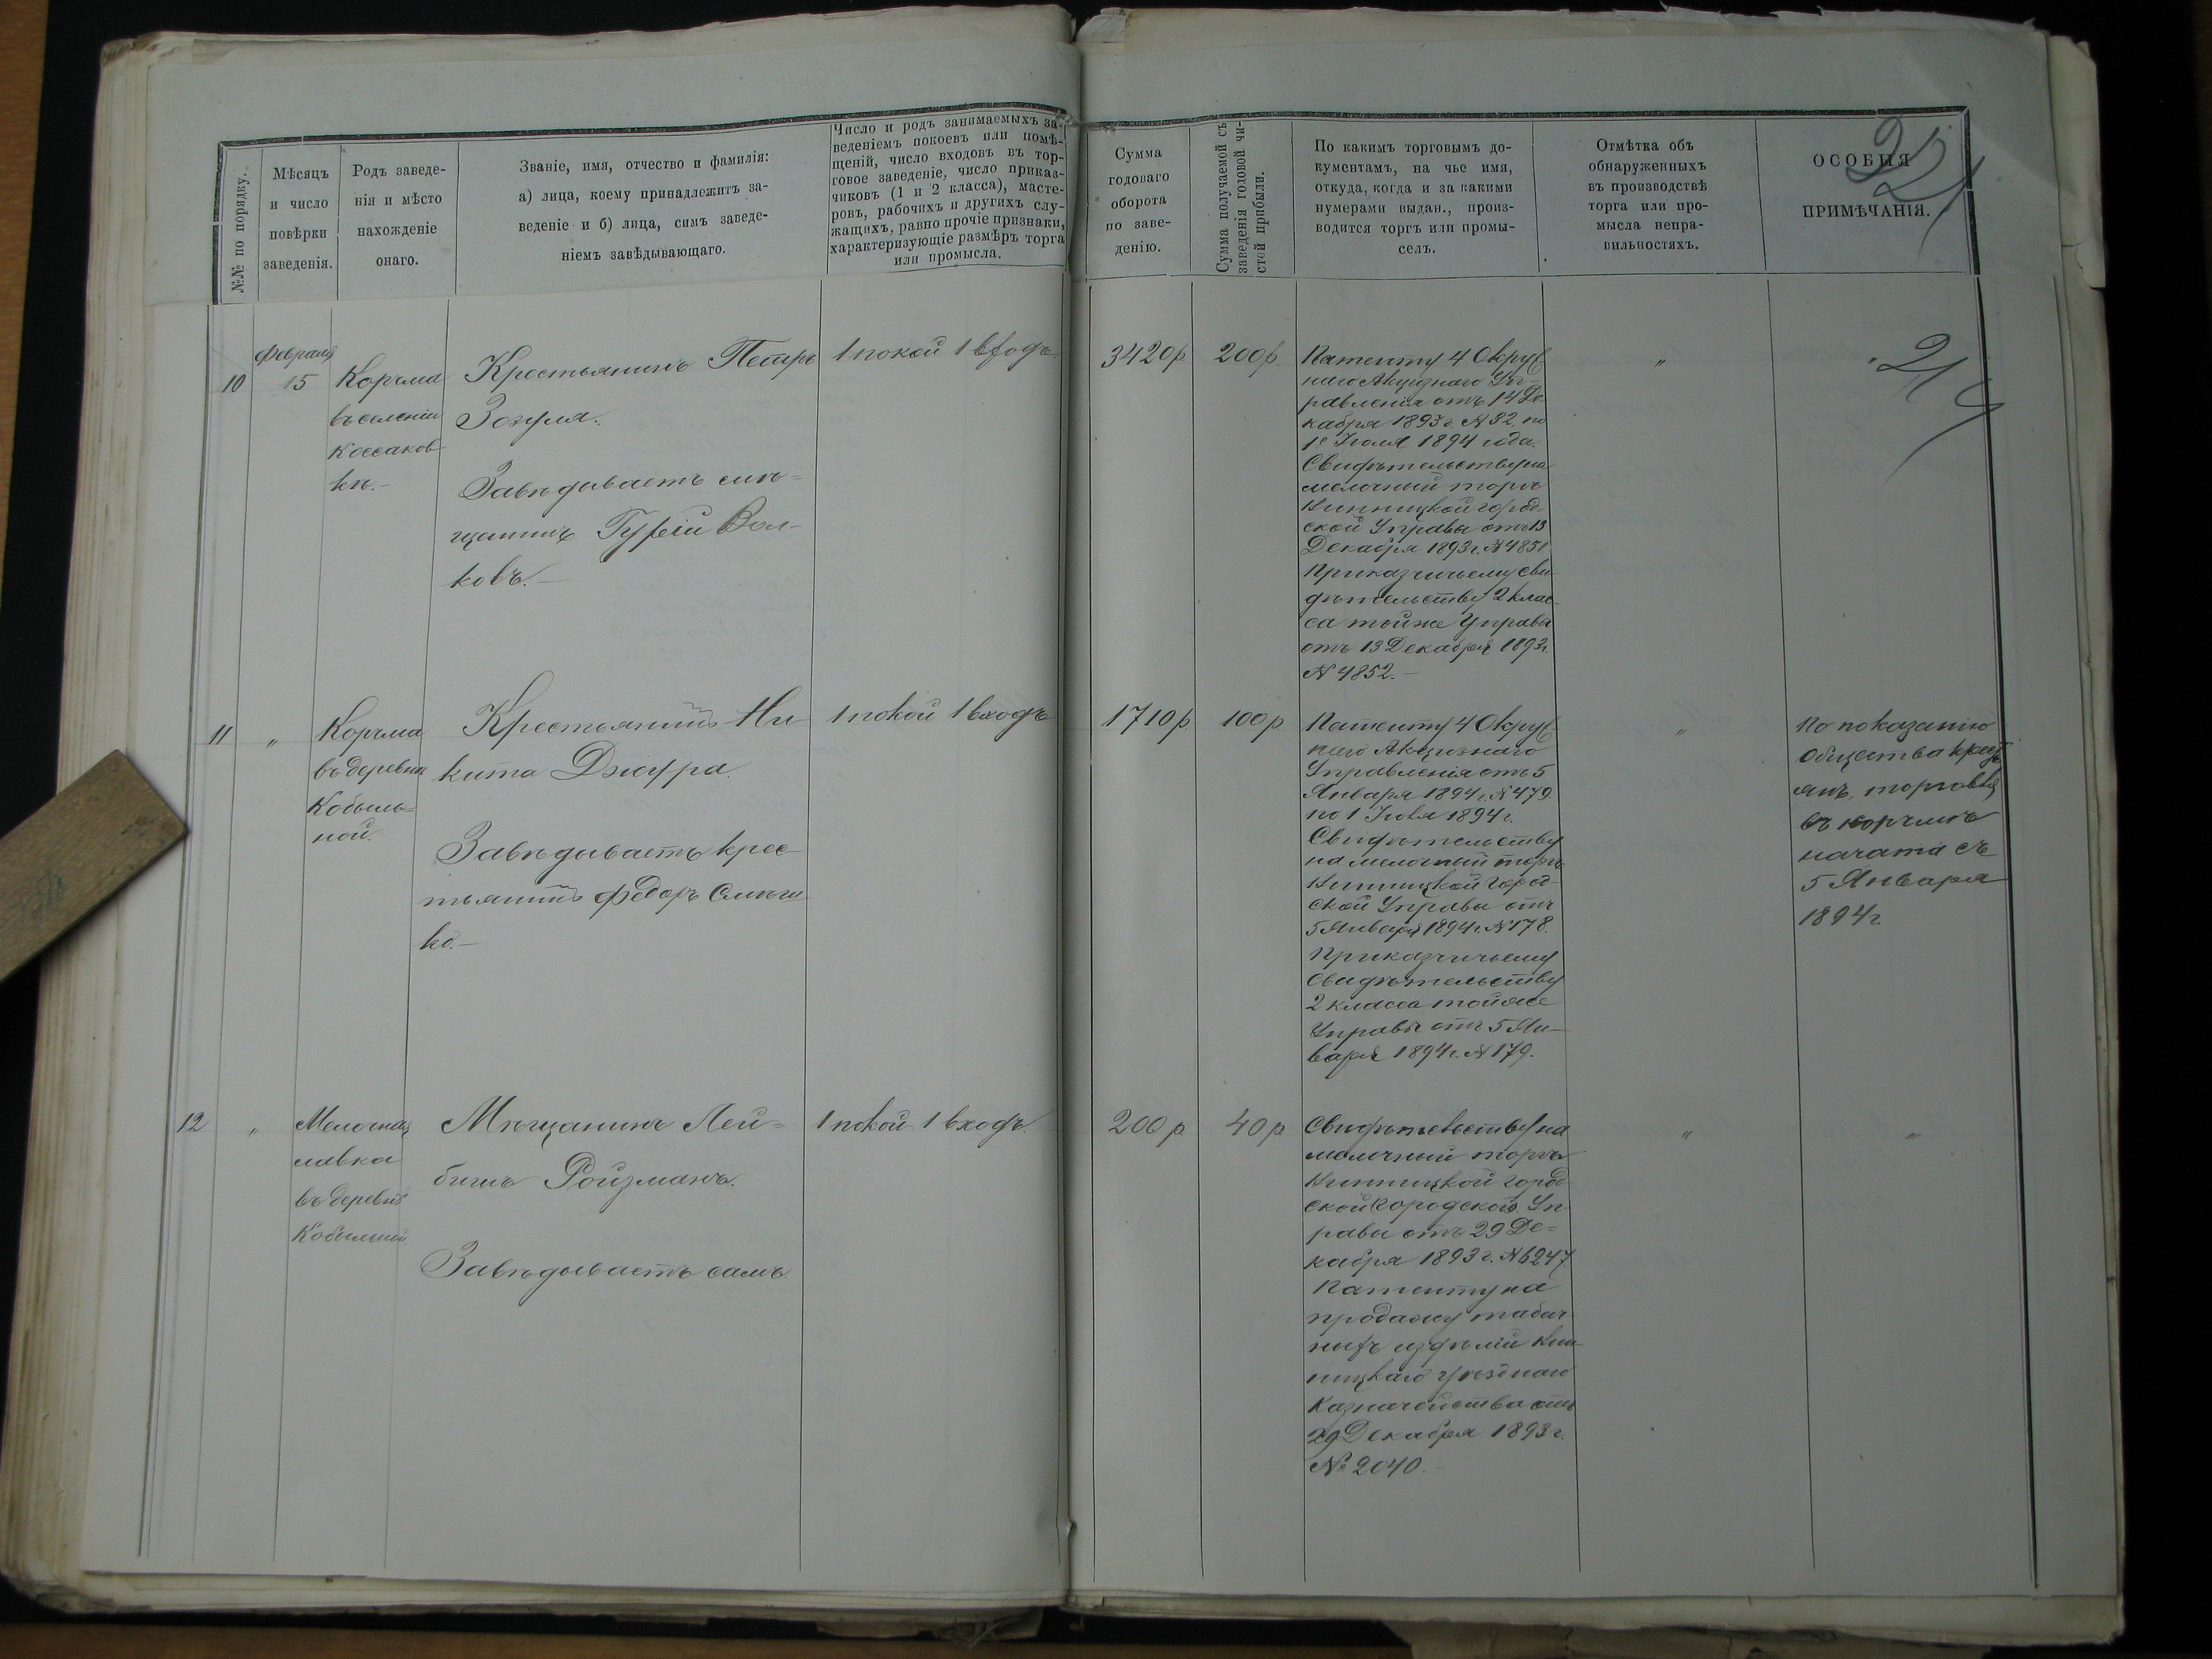 №№ по порядку.
Мѣсяцъ
и число
повѣрки
заведенія.
Родъ заведе-
нія и мѣсто
нахожденіе
онаго.
Званіе, имя, отчество и фамилія:
а) лица, коему принадлежитъ за-
веденіе и б) лица, симъ заведе-
ніемъ завѣдывающаго.
Число и родъ занимаемыхъ за-
веденіемъ покоевъ или помѣ-
щеній, число входовъ въ тор-
говое заведеніе, число приказ-
чиковъ (1 и 2 класса), масте-
ровъ, рабочихъ и другихъ слу-
жащихъ, равно прочіе признаки,
характеризующіе размѣръ торга
или промысла.
Сумма
годоваго
оборота
по заве-
денію.
Сумма получаемой съ
заведенія годовой чи-
стой прибыли.
По какимъ торговымъ до-
кументамъ, на чье имя,
откуда, когда и за какими
нумерами выдан., произ-
водится торгъ или промы-
селъ.
Отмѣтка объ
обнаруженныхъ
въ производствѣ
торга или про-
мысла непра-
вильностяхъ.
ОСОБЫЯ
ПРИМѢЧАНІЯ.
10
Февраля
15
Корчма
въ селеніи
Коссаков-
кѣ.-
Крестьянинъ Петръ
Зозуля.
Завѣдываетъ
Гурій Вол-
ковъ.-
1 покой 1 входъ
3420 р
200 р.
Патенту 4 Округ
наго Акцизнаго Уп-
равленія отъ 14 Де-
кабря 1893 г. № 32 по
1е Іюля 1894 года.
Свидѣтельству на
мелочный торгъ
Винницкой Город-
ской Управы отъ 13
Декабря 1893 г. № 4851
Приказчичьему сви-
дѣтельству 2 клас-
са той же Управы
отъ 13 Декабря 1893 г.
№ 4852.-
"
"
11
"
Корчма
въ деревни
Кобыль-
ной.
Крестьянинъ Ни
кита Дзюра.
Завѣдываетъ крес-
тьянинъ Федоръ
ко.-
1 покой 1 входъ
1710 р
100 р
Патенту 4 Округ
наго Акцизнаго
Управленія отъ 5
Января 1894 г. № 479
по 1 Іюля 1894 г.
Свидѣтельству
на мелочный торгъ
Винницкой Город-
ской Управы отъ
5 Января 1894 г. № 178.
Приказчичьему
Свидѣтельству
2 класса той же
Управы отъ 5 Ян-
варя 1894 г. № 179.
"
По показанію
Общества крест
янъ, торговля
въ корчмѣ
начата съ
5 Января
1894 г.
12
"
Мелочная
лавка
въ деревнѣ
Кобыльной.
Мѣщанинъ Лей-
бишъ Ройзманъ.
Завѣдываетъ самъ.
1 покой 1 входъ.
200 р.
40 р.
Свидѣтельству на
мелочный торгъ
Винницкой Город
ской Городской Уп
равы отъ 29 Де-
кабря 1893 г. № 6247
Патенту на
продажу табач-
ныхъ издѣлій Вин-
ницкаго Уѣзднаго
Казначейства отъ
29 Декабря 1893 г.
№ 2040.-
"
"